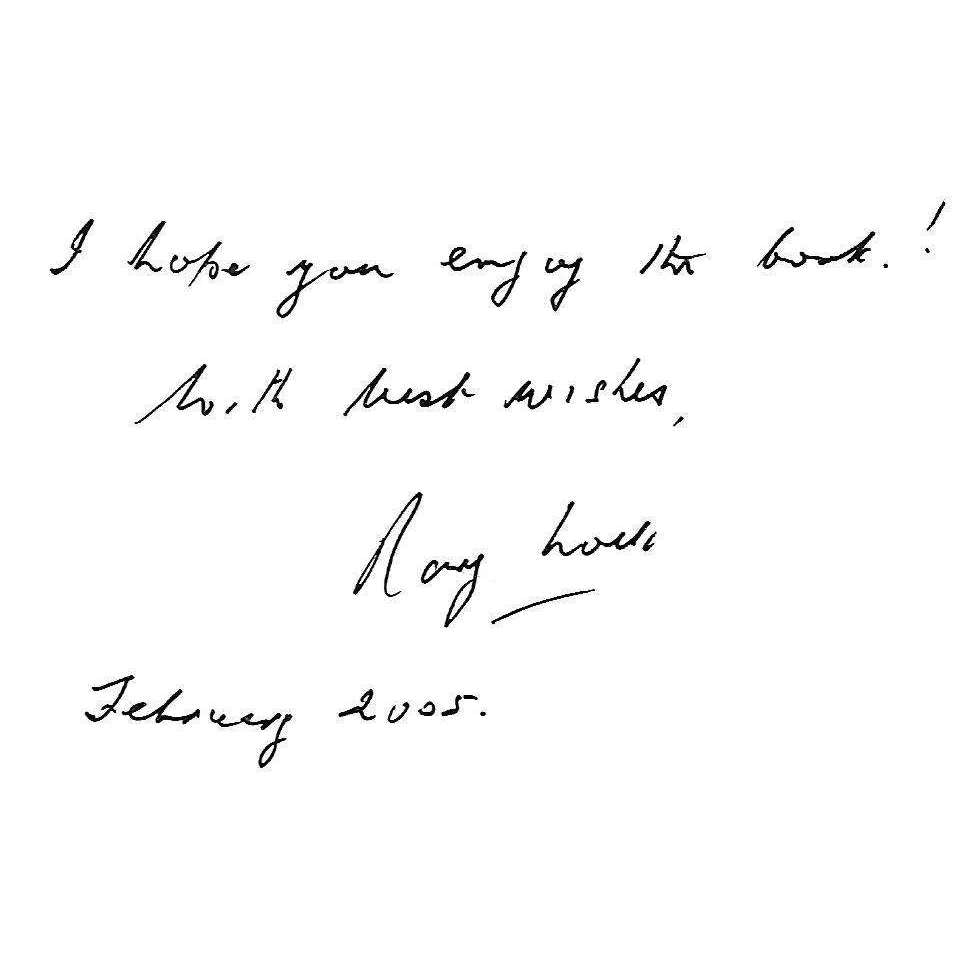 I hope you enjoy the book.!
With best wishes,
Ray
February 2005.